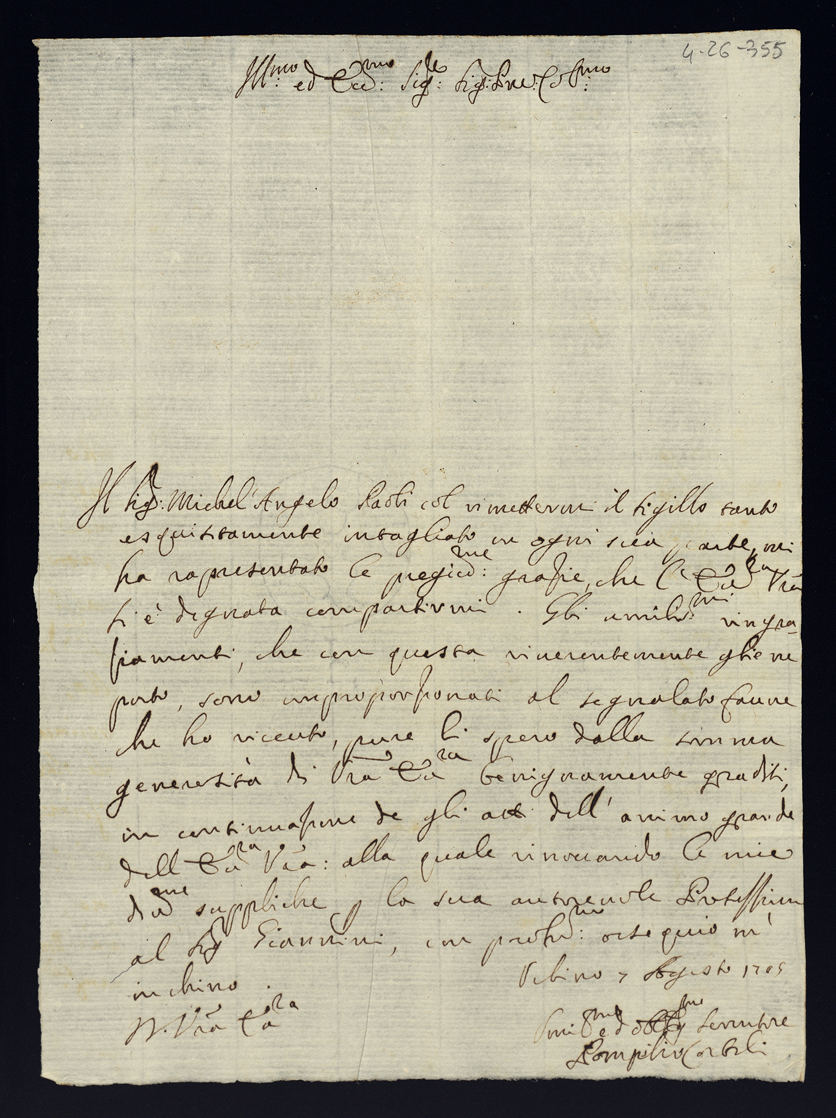 4-26-355
Ill:mo ed Ecc:mo Sig:re Sig: Pne: Col:mo
Il Sig: Michel'Angelo Paoli col rimettermi il sigillo tanto
esquisitamente intagliato in ogni sua parte, mi
ha rapresentato le pregiat:me grazie, che l'Ecc:za Vra
si è degnata compartirmi. Gli umilis:mi ringra-
ziamenti, che con questa riverentemente gliene
porto, sono improporzionati al segnalato favore
che ho riceuto, pure li spero dalla somma
generosità di Vra Ecc:za benignamente graditi,
in continuazione de gli atti dell'animo grande
dell'Ecc:za Vra: alla quale rinovando le mie
suppliche p la sua autorevole Protezzione
al Sig Giannini, con profon:mo ossequio m'
inchino.
Urbino 7 Agosto 1705
D. Vra Ecc:za
ed Servitore
Pompilio